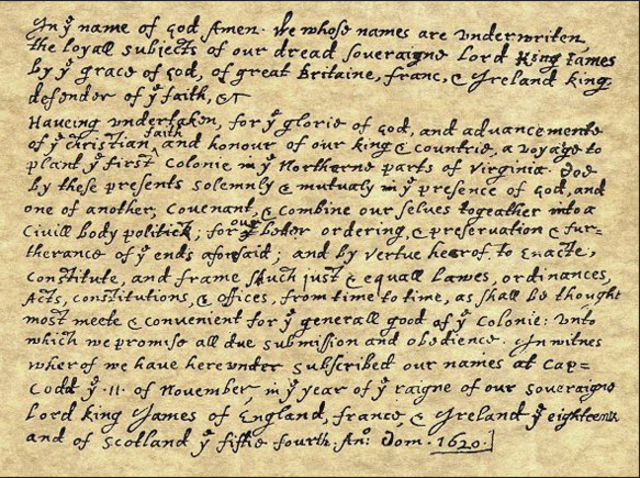 In yᵉ name of god Amen. We whose names are underwriten,
the loyall subjects of our dread soveraigne Lord King James
by yᵉ grace of god, of great Britaine, franc, & Ireland king,
defender of yᵉ faith, &c
Haveing undertaken, for yᵉ glorie of god, and advancemente
of yᵉ christian faith, and honour of our king & countrie, a voyage to
plant yᵉ first colonie in yᵉ Northerne parts of Virginia. Doe
by these presents solemnly & mutualy in yᵉ presence of god, and
one of another, covenant, & combine our selves togeather into a
Civill body politick; for our better ordering, & preservation & fur=
therance of yᵉ ends aforesaid; and by vertue hearof, to Enacte,
constitute, and frame shuch just & equall Lawes, ordinances,
Acts, constitutions, & offices, from time to time, as shall be thought
most meete & convenient for yᵉ generall good of yᵉ Colonie: unto
which we promise all due submission and obedience. In witnes
wherof we have hereunder subscribed our names at Cap=
Codd yᵉ .11. of November, in yᵉ year of yᵉ raigne of our soveraigne
Lord king James of England, france, & Ireland yᵉ eighteenth
and of Scotland yᵉ fiftie fourth. Anº: Dom. 1620.